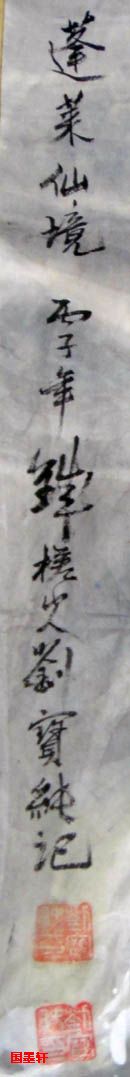 蓬莱仙境 丙子年 劉寶純記
国墨轩